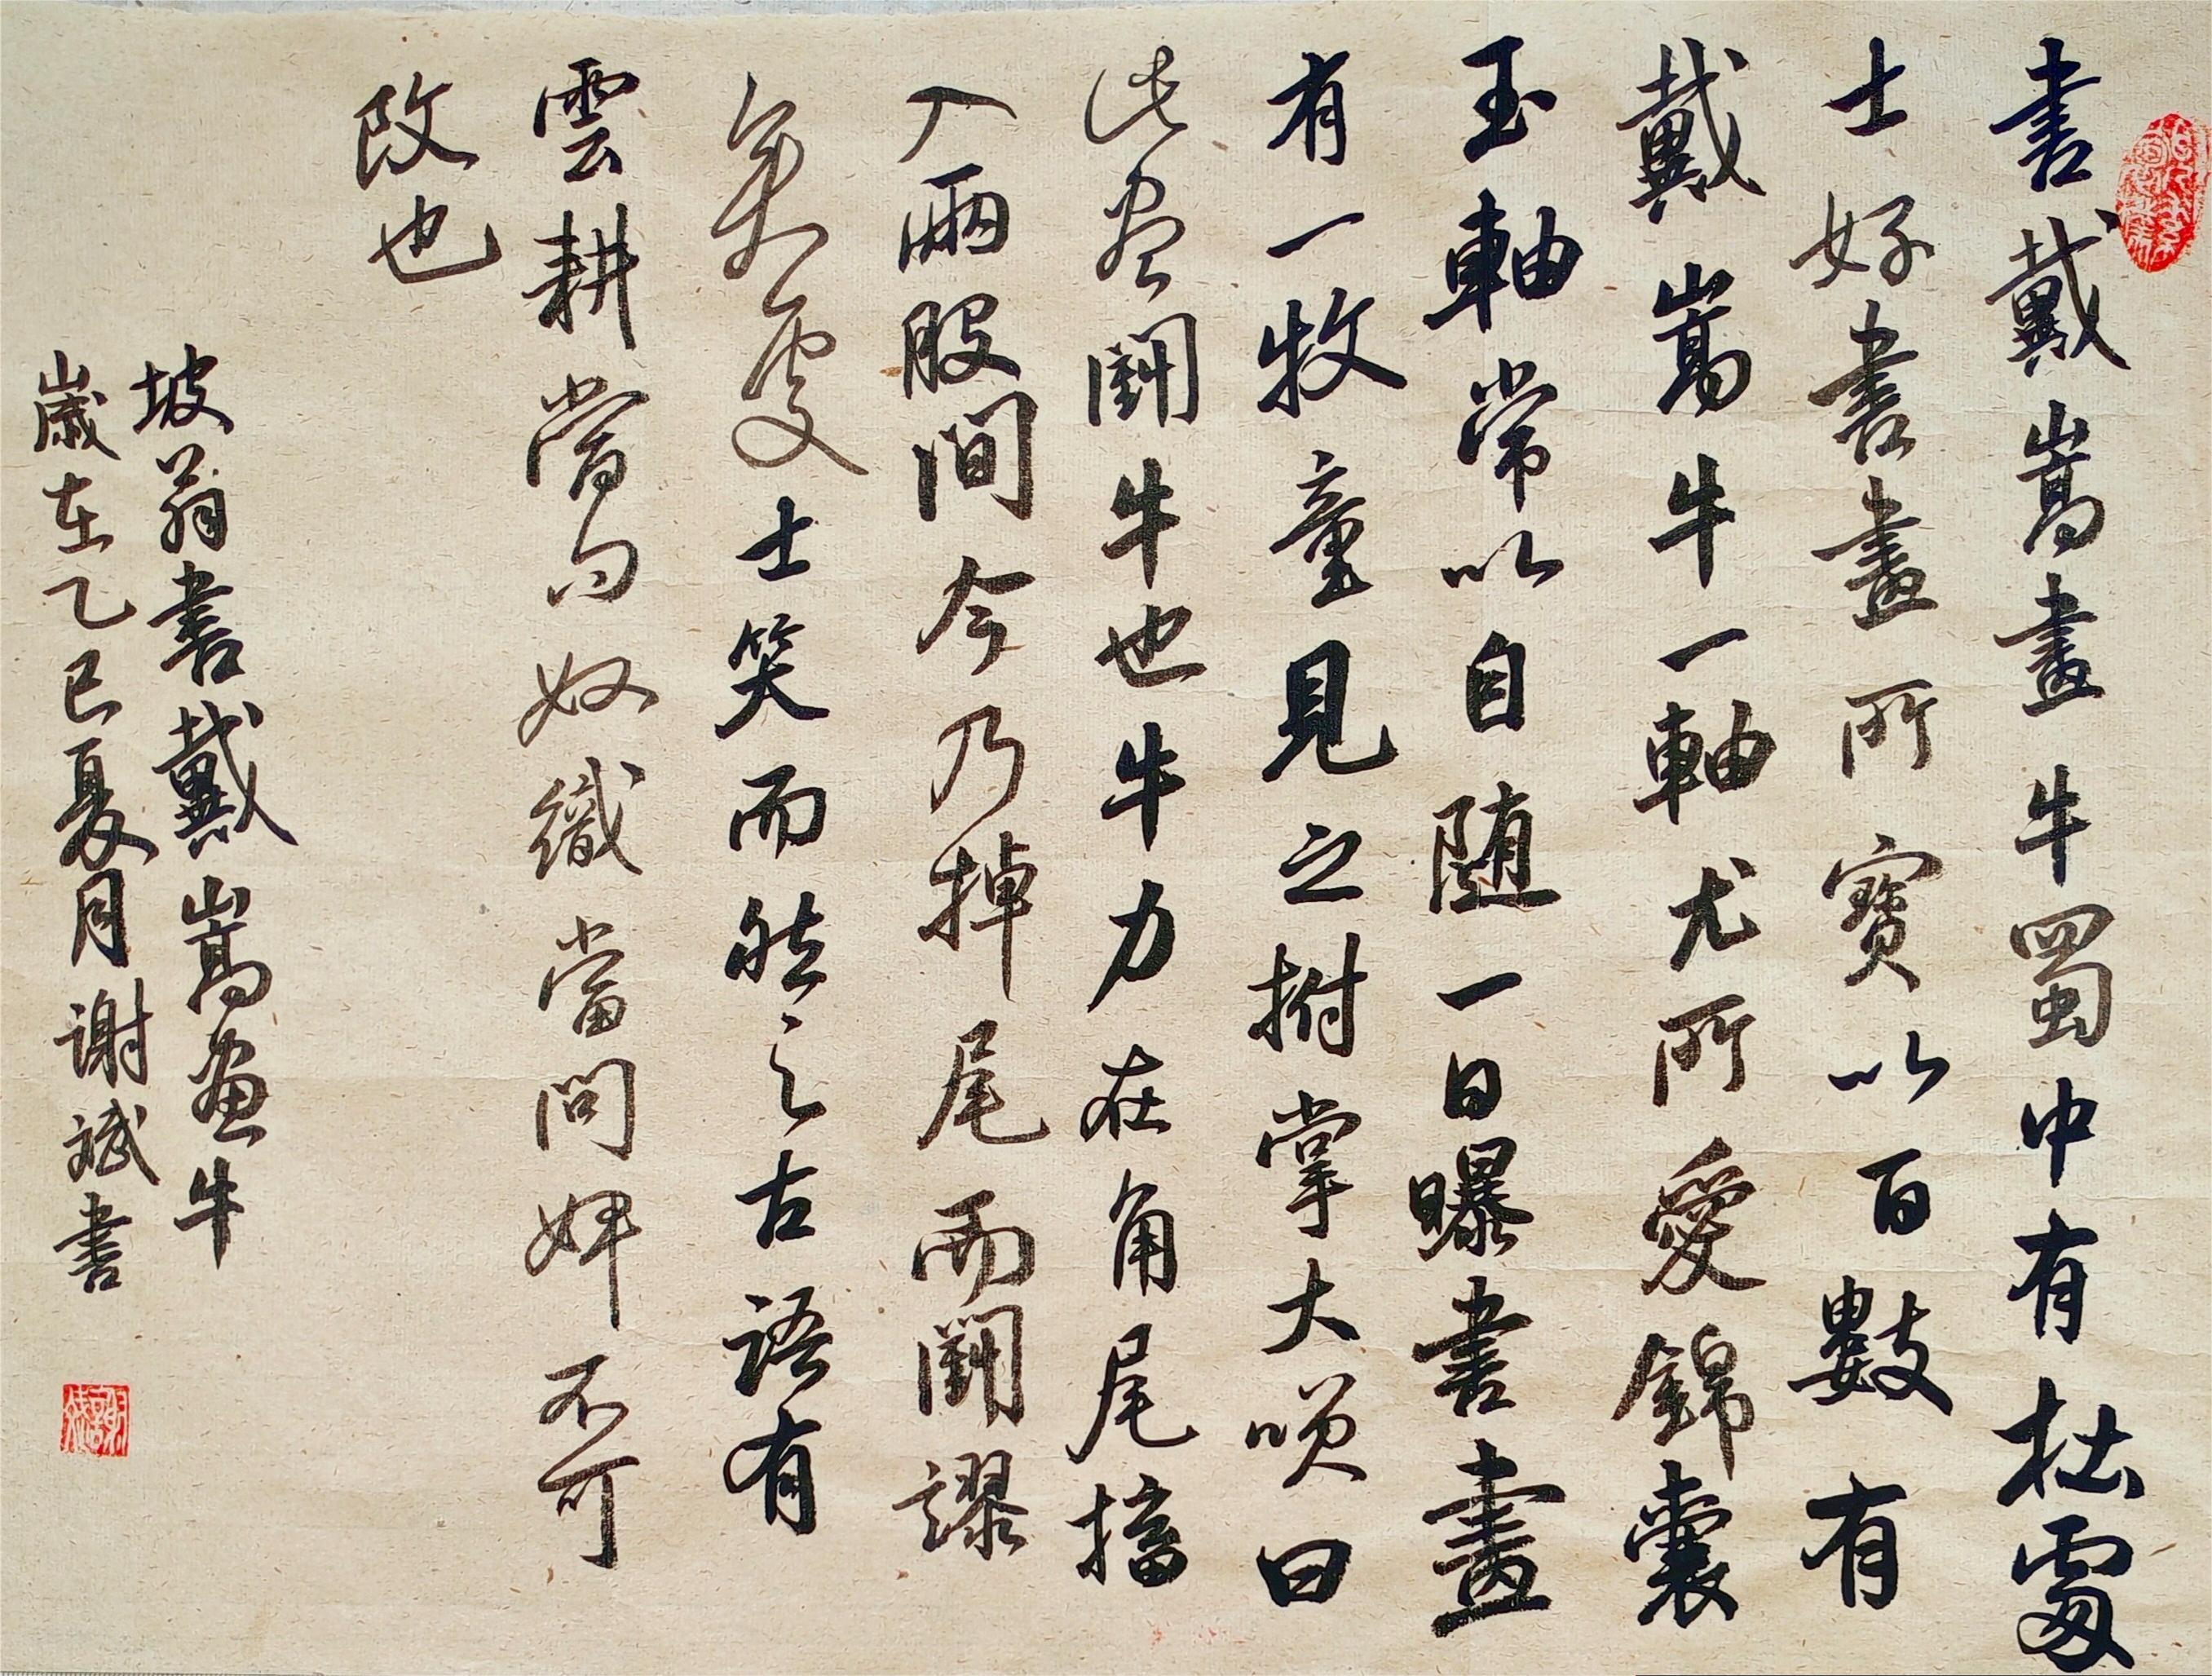 書戴嵩畫牛蜀中有杜處
士好書畫所寶以百數有
戴嵩牛一軸尤所愛錦囊
玉軸常以自随一日曝書畫
有一牧童見之拊掌大咲曰
此畫鬪牛也牛力在角尾搐
入兩股間今乃掉尾而鬪謬
矣處士笑而然之古語有
雲耕當問奴織當問婢不可
改也
坡翁書戴嵩畫牛
歲在乙巳夏月謝斌書